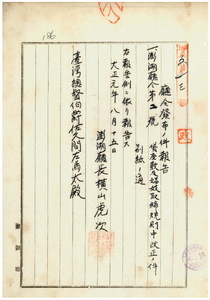 186
廳令發布ノ件報告
一澎湖廳令第二號
貸座敷及娼妓取締規則中改正ノ件
別紙ノ通
右報告例ニ依リ報告ス
大正元年八月十五日
澎湖廳長橫山虎次
臺灣總督伯爵佐久間左馬太殿
澎湖廳